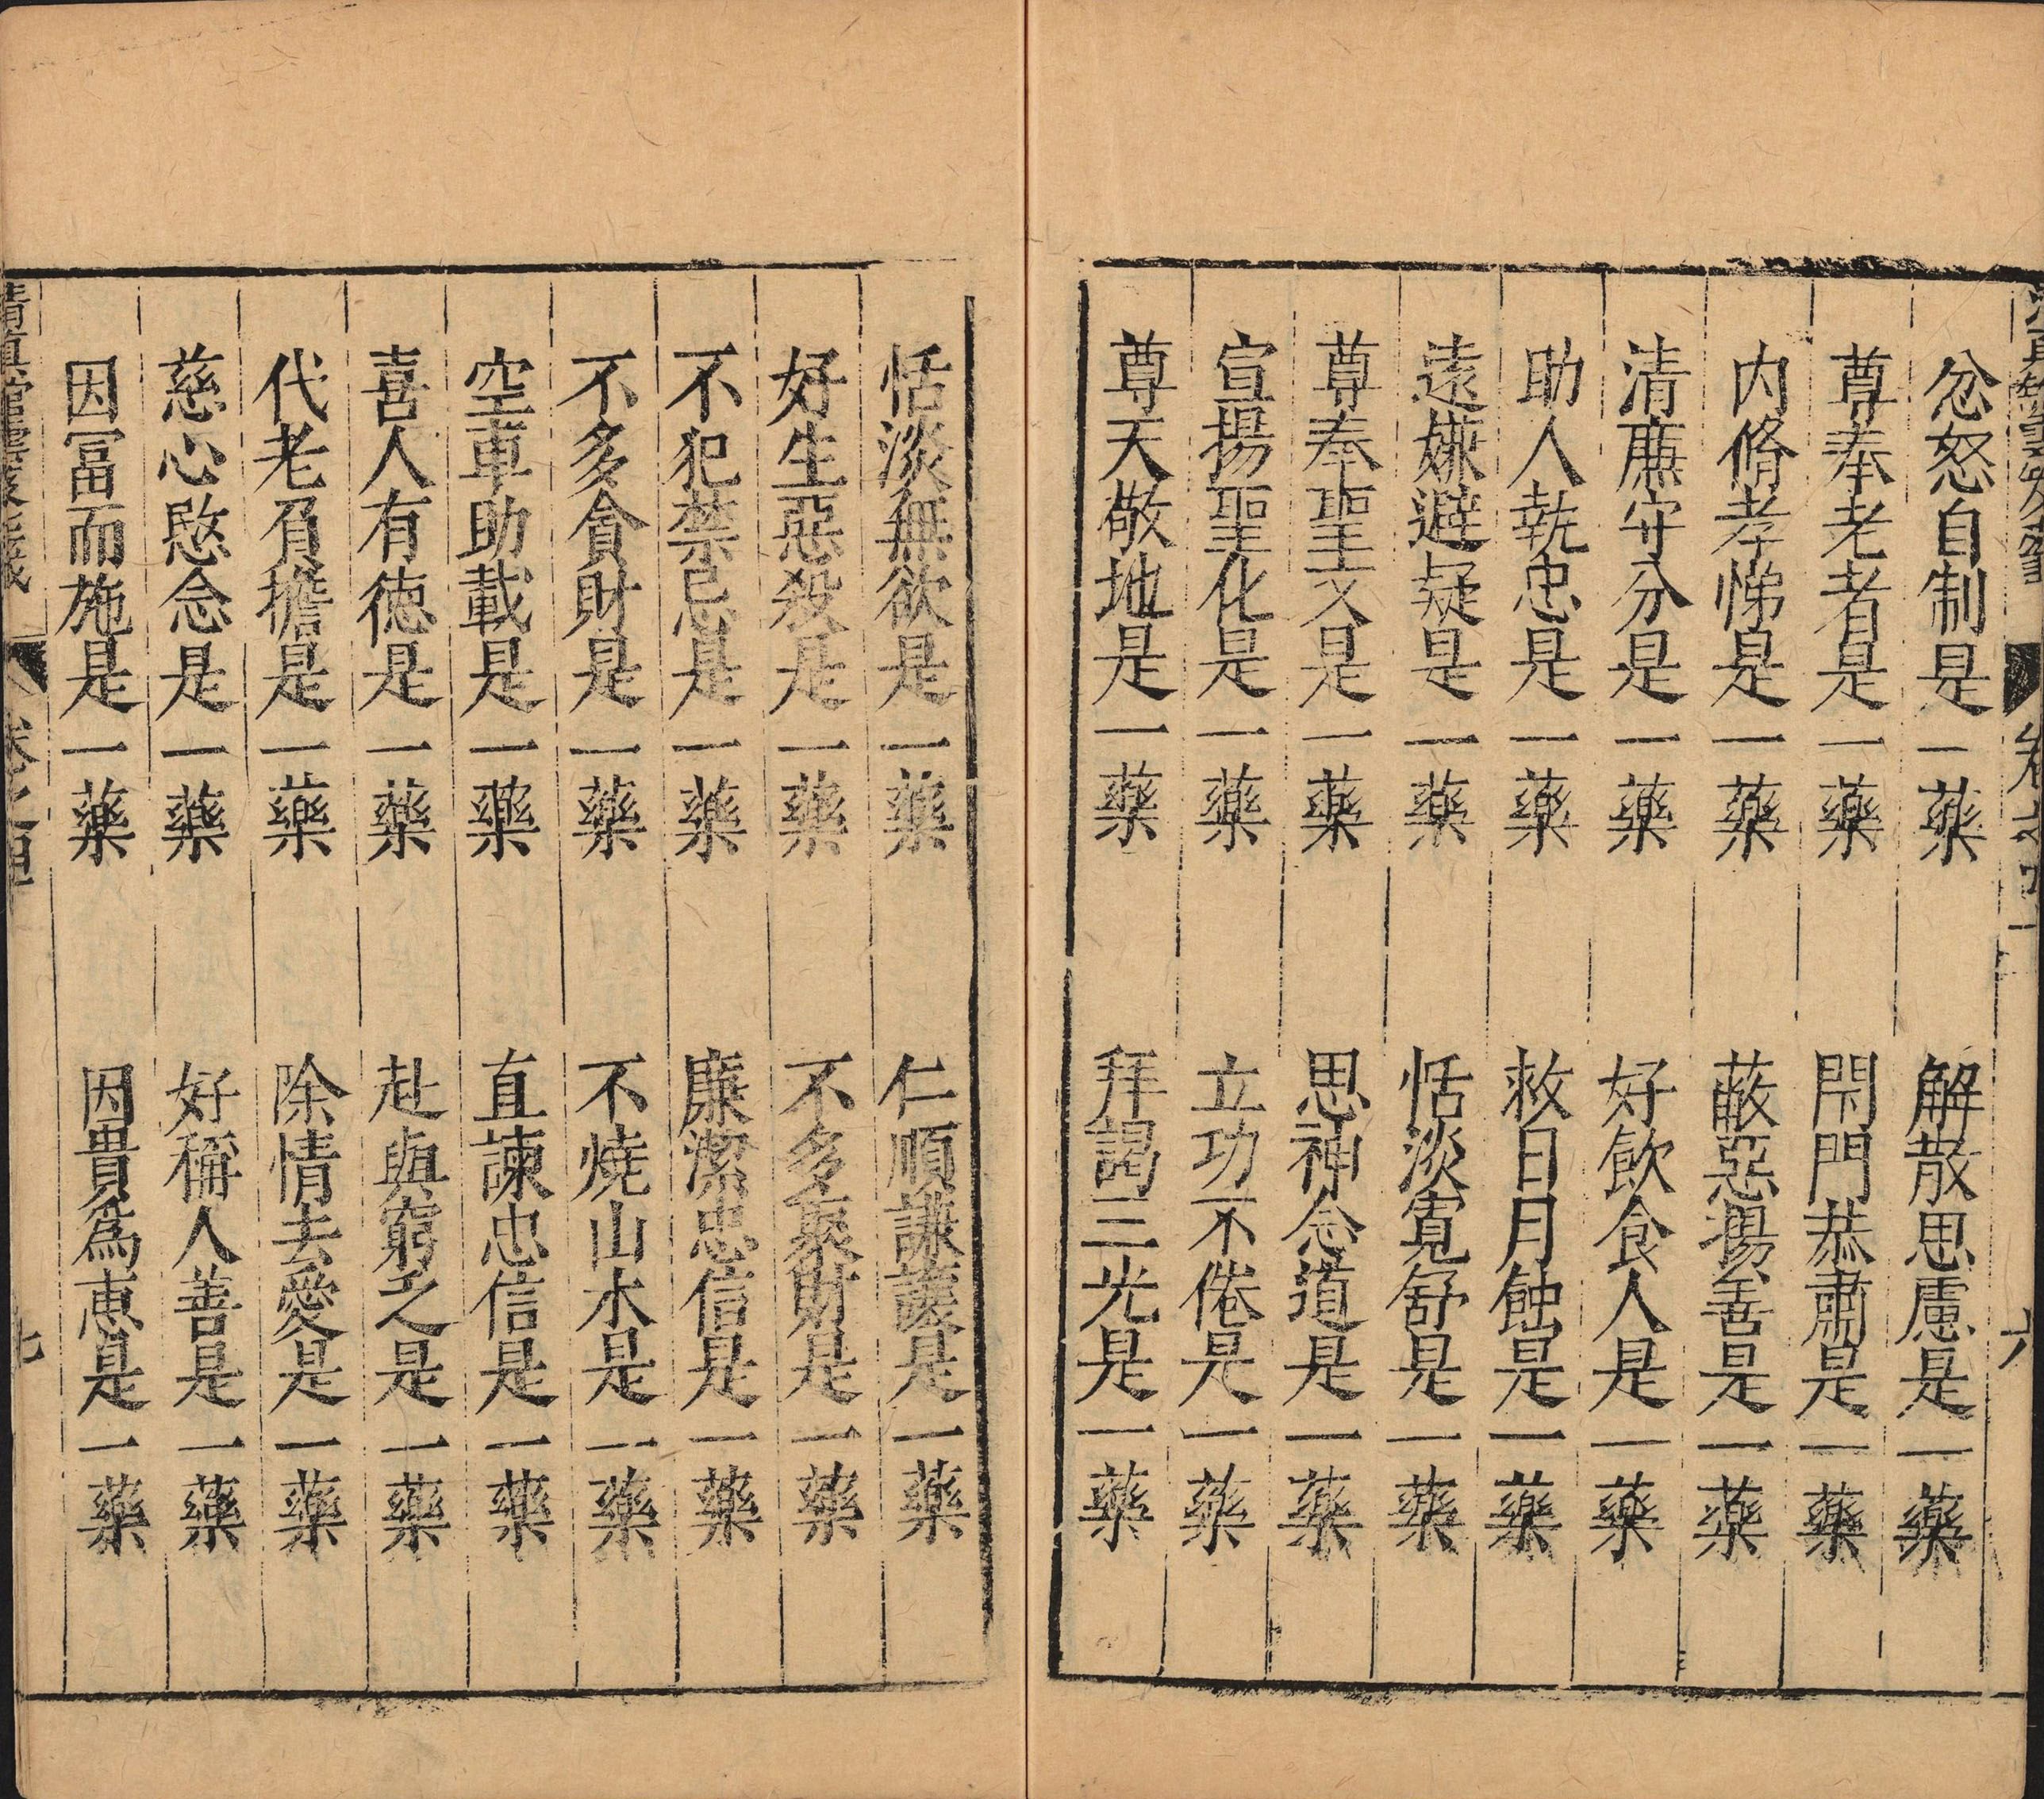 忿怒自制是一藥　解散思慮是一藥
尊奉老者是一藥　閇門恭肅是一藥
内脩孝悌是一藥　蔽惡揚善是一藥
清廉守分是一藥　好飲食人是一藥
助人執忠是一藥　救日月蝕是一藥
遠嫌避疑是一藥　恬淡寬舒是一藥
尊奉聖文是一藥　思神念道是一藥
宣揚聖化是一藥　立功不倦是一藥
尊天敬地是一藥　拜謁三光是一藥
六
恬淡無欲是一藥　仁順謙讓是一藥
好生惡殺是一藥　不多聚財是一藥
不犯禁忌是一藥　廉潔忠信是一藥
不多貪財是一藥　不燒山木是一藥
空車助載是一藥　直諫忠信是一藥
喜人有德是一藥　赴與窮乏是一藥
代老負擔是一藥　除情去愛是一藥
慈心愍念是一藥　好稱人善是一藥
因冨而施是一藥　因貴為惠是一藥
七